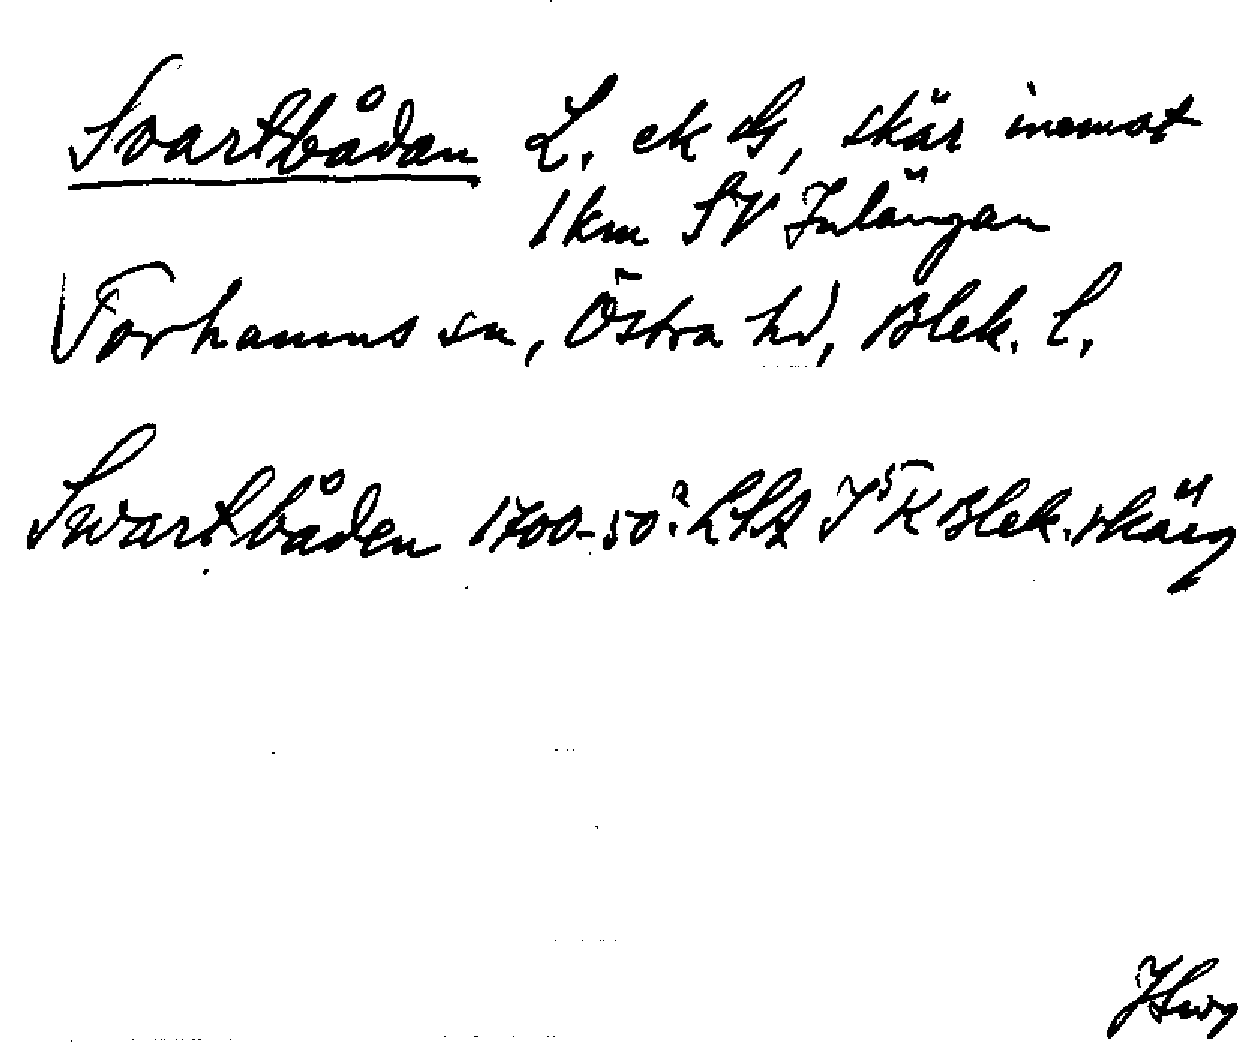 Svartbådan L. ek G, skär inomot
1 km SV Inlängan
Torhamns sn, Östra hd, Blek. l.
Swartbåden 1700-50? LSA JSK Blek. skärg